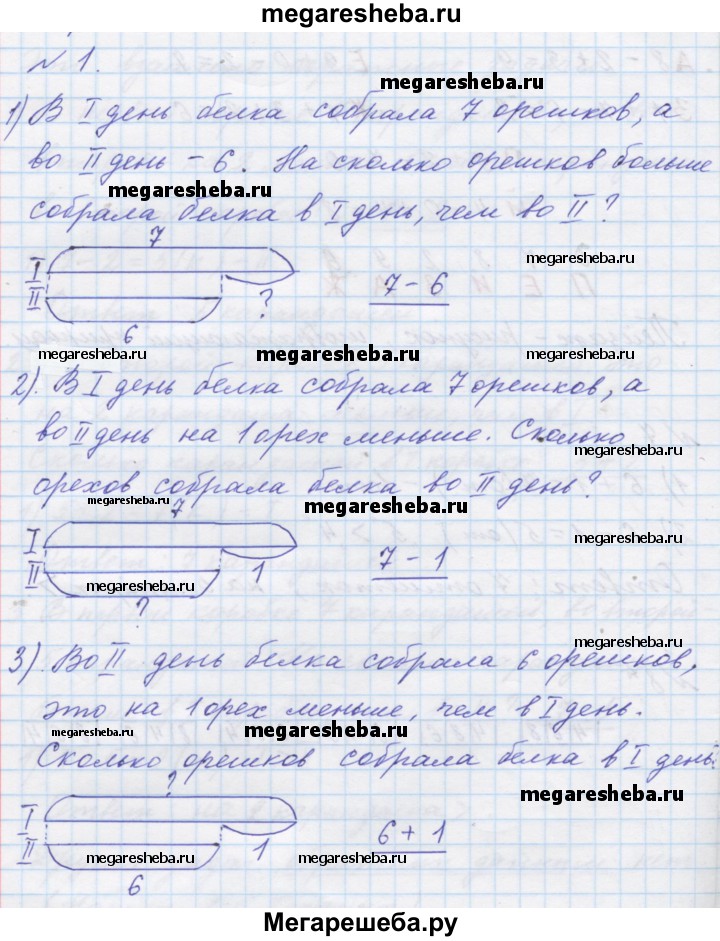 megaresheba.ru
№ 1.
megaresheba.ru
1) В I день белка собрала 7 орешков, а
во II день - 6. На сколько орешков больше
megaresheba.ru
собрала белка в I день, чем во II?
7
I
II
?
7 - 6
6
megaresheba.ru
megaresheba.ru
megaresheba.ru
megaresheba.ru
2). В I день белка собрала 7 орешков, а
во II день на 1 орех меньше. Сколько
megaresheba.ru
орехов собрала белка во II день?
megaresheba.ru
megaresheba.ru
7
I
II
1
7 - 1
megaresheba.ru
?
megaresheba.ru
3). Во II день белка собрала 6 орешков,
megaresheba.ru
это на 1 орех меньше, чем в I день.
megaresheba.ru
megaresheba.ru
Сколько орешков собрала белка в I день.
?
megaresheba.ru
I
II
1
6 + 1
megaresheba.ru
megaresheba.ru
6
Мегарешеба.ру